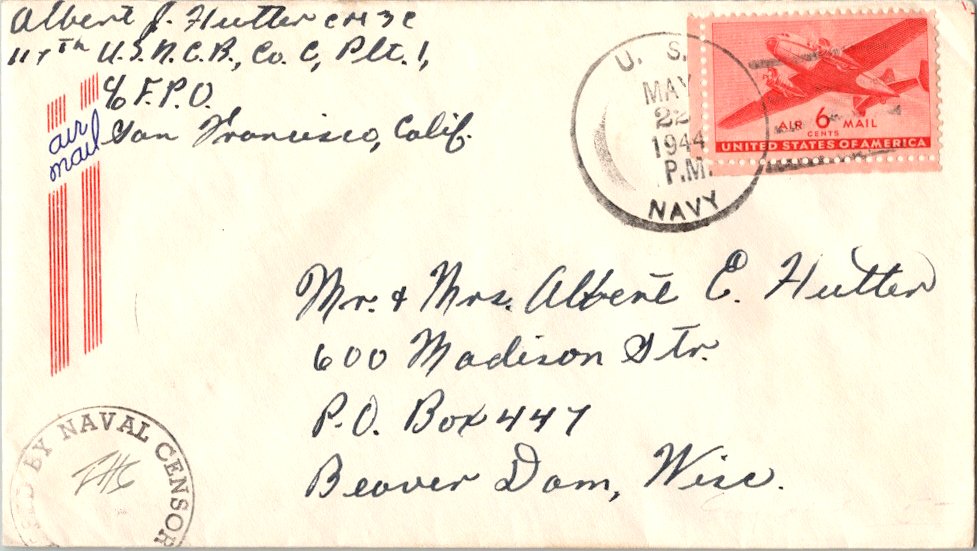 Albert J. Hutter CM3C
117th U.S.N.C.B., Co. C, Plt. 1,
c/o F.P.O.
San Francisco, Calif.
air
mail
U. S.
MAY
22
1944
P.M.
NAVY
AIR 6 MAIL
CENTS
UNITED STATES OF AMERICA
Mr. & Mrs. Albert E. Hutter
600 Madison Str.
P.O. Box 447
Beaver Dam, Wisc.
BY NAVAL CENSOR